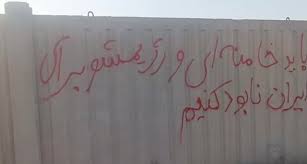 باید خامنه ای و رژیمشو برای
ایران نابود کنیم